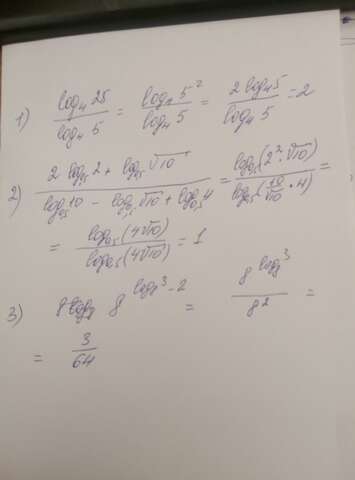 1) log₄ 25 / log₄ 5 = log₄ 5² / log₄ 5 = 2 log₄ 5 / log₄ 5 = 2
2) (2 log₀,₅ 2 + log₀,₅ √10) / (log₀,₅ 10 − log₀,₅ √10 + log₀,₅ 4) = log₀,₅ (2² · √10) / log₀,₅ (10/√10 · 4) =
= log₀,₅ (4√10) / log₀,₅ (4√10) = 1
3) 8^(log₈ 3 − 2) = 8^(log₈ 3) / 8² =
= 3/64